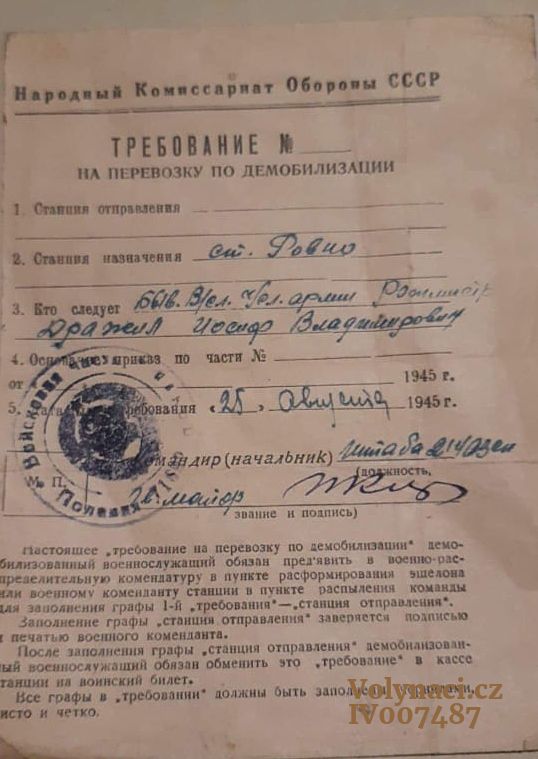 Народный Комиссариат Обороны СССР
ТРЕБОВАНИЕ №
НА ПЕРЕВОЗКУ ПО ДЕМОБИЛИЗАЦИИ
1. Станция отправления
2. Станция назначения ст. Ровно
3. Кто следует быв. В/сл. Ч/сл. армии
Иосиф Владимирович
4. приказ по части №
от 1945 г.
5. требования „25„ августа 1945 г.
командир (начальник) штаба
(должность,
М. П. майор
звание и подпись)
Войсковая часть
Полевая
Настоящее „требование на перевозку по демобилизации" демо-
билизованный военнослужащий обязан предъявить в военно-рас-
пределительную комендатуру в пункте расформирования эшелона
или военному коменданту станции в пункте распыления команды
для заполнения графы 1-й „требования"—„станция отправления".
Заполнение графы „станция отправления" заверяется подписью
и печатью военного коменданта.
После заполнения графы „станция отправления" демобилизован-
ный военнослужащий обязан обменить это „требование" в кассе
станции на воинский билет.
Все графы в „требовании" должны быть заполнены чернилами,
чисто и четко.
Volynaci.cz
IV007487